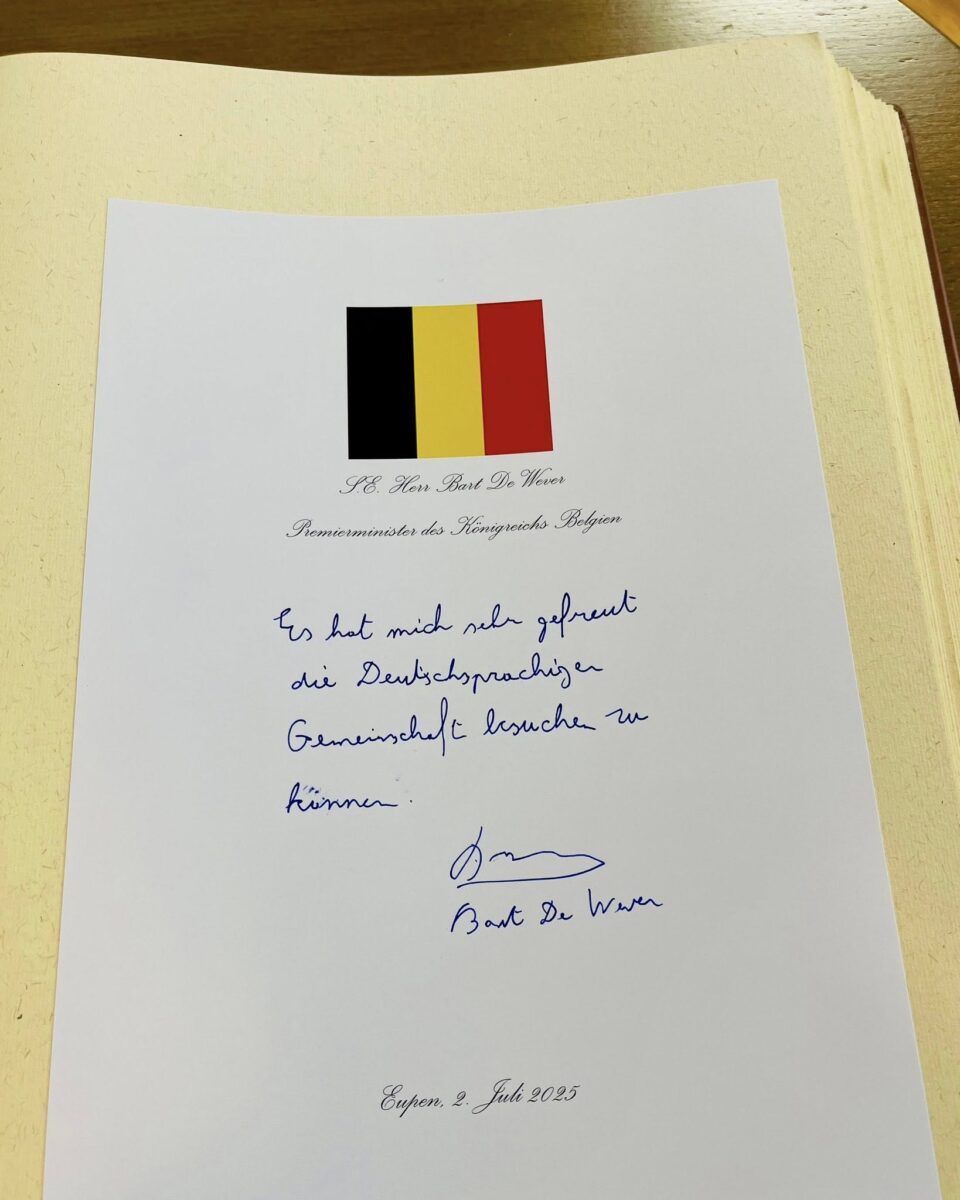 S.E. Herr Bart De Wever
Premierminister des Königreichs Belgien
Es hat mich sehr gefreut
die Deutschsprachigen
Gemeinschaft besuchen zu
können.
Bart De Wever
Eupen, 2. Juli 2025